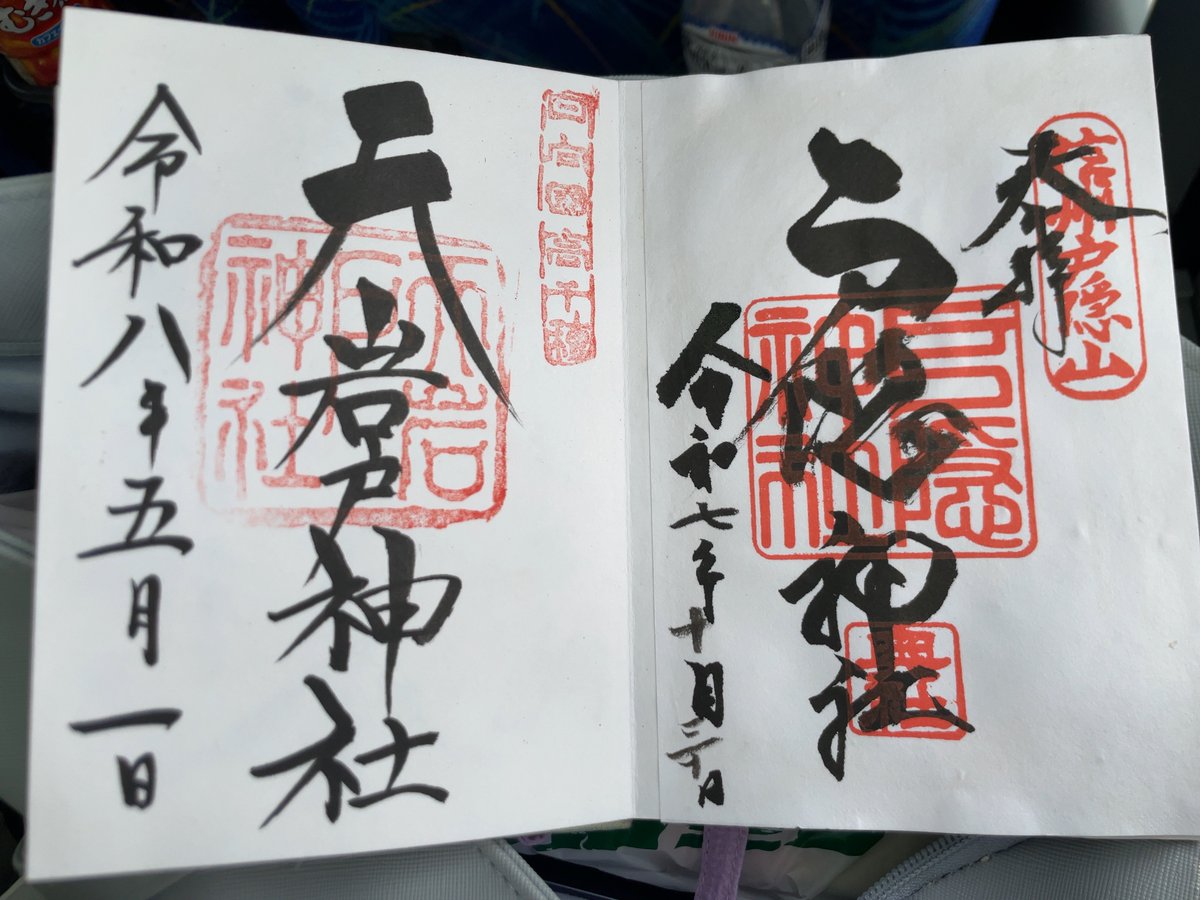 奉拝
信州戸隠山
戸隠神社
戸隠神社
奥社
令和七年十月
日向國高千穂
天岩戸神社
天岩戸神社
令和八年五月一日